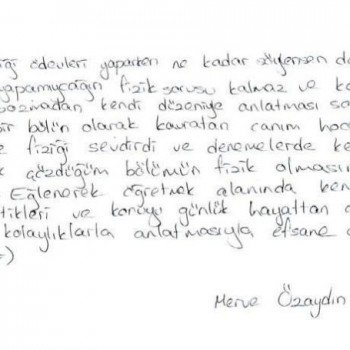 ği ödevleri yaparken ne kadar söylersen da
yapamıycağın fizik sorusu kalmaz ve ko
bozmadan kendi düzeniyle anlatması sa
bir bölün olarak kavratan canım hoc
e fiziği sevdirdi ve denemelerde ke
k çözdüğüm bölümün fizik olmasın
Eğlenerek öğretmek alanında ken
tikleri ve konuyu günlük hayattan ö
kolaylıklarla anlatmasıyla efsane o
=)
Merve Özaydın